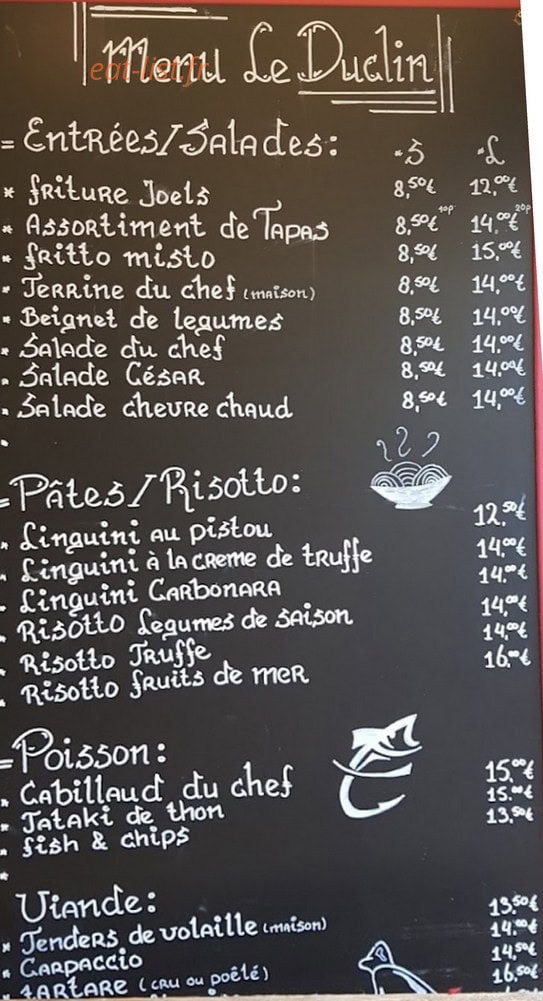 Menu Le Duclin
eat-list.fr
= Entrées/Salades: -S -L
* friture Joels 8,50€ 12,00€
* Assortiment de Tapas 8,50€ 10p 14,00€ 20p
* fritto misto 8,50€ 15,00€
* Terrine du chef (maison) 8,50€ 14,00€
* Beignet de legumes 8,50€ 14,00€
* Salade du chef 8,50€ 14,00€
* Salade César 8,50€ 14,00€
* Salade chevre chaud 8,50€ 14,00€
= Pâtes/Risotto:
* Linguini au pistou 12,50€
* Linguini à la creme de truffe 14,00€
* Linguini Carbonara 14,00€
* Risotto Legumes de saison 14,00€
* Risotto Truffe 14,00€
* Risotto fruits de mer 16,00€
= Poisson:
* Cabillaud du chef 15,00€
* Tataki de thon 15,00€
* fish & chips 13,50€
Viande:
* Tenders de volaille (maison) 13,50€
* Carpaccio 14,00€
* tartare (cru ou poêlé) 14,50€
16,50€